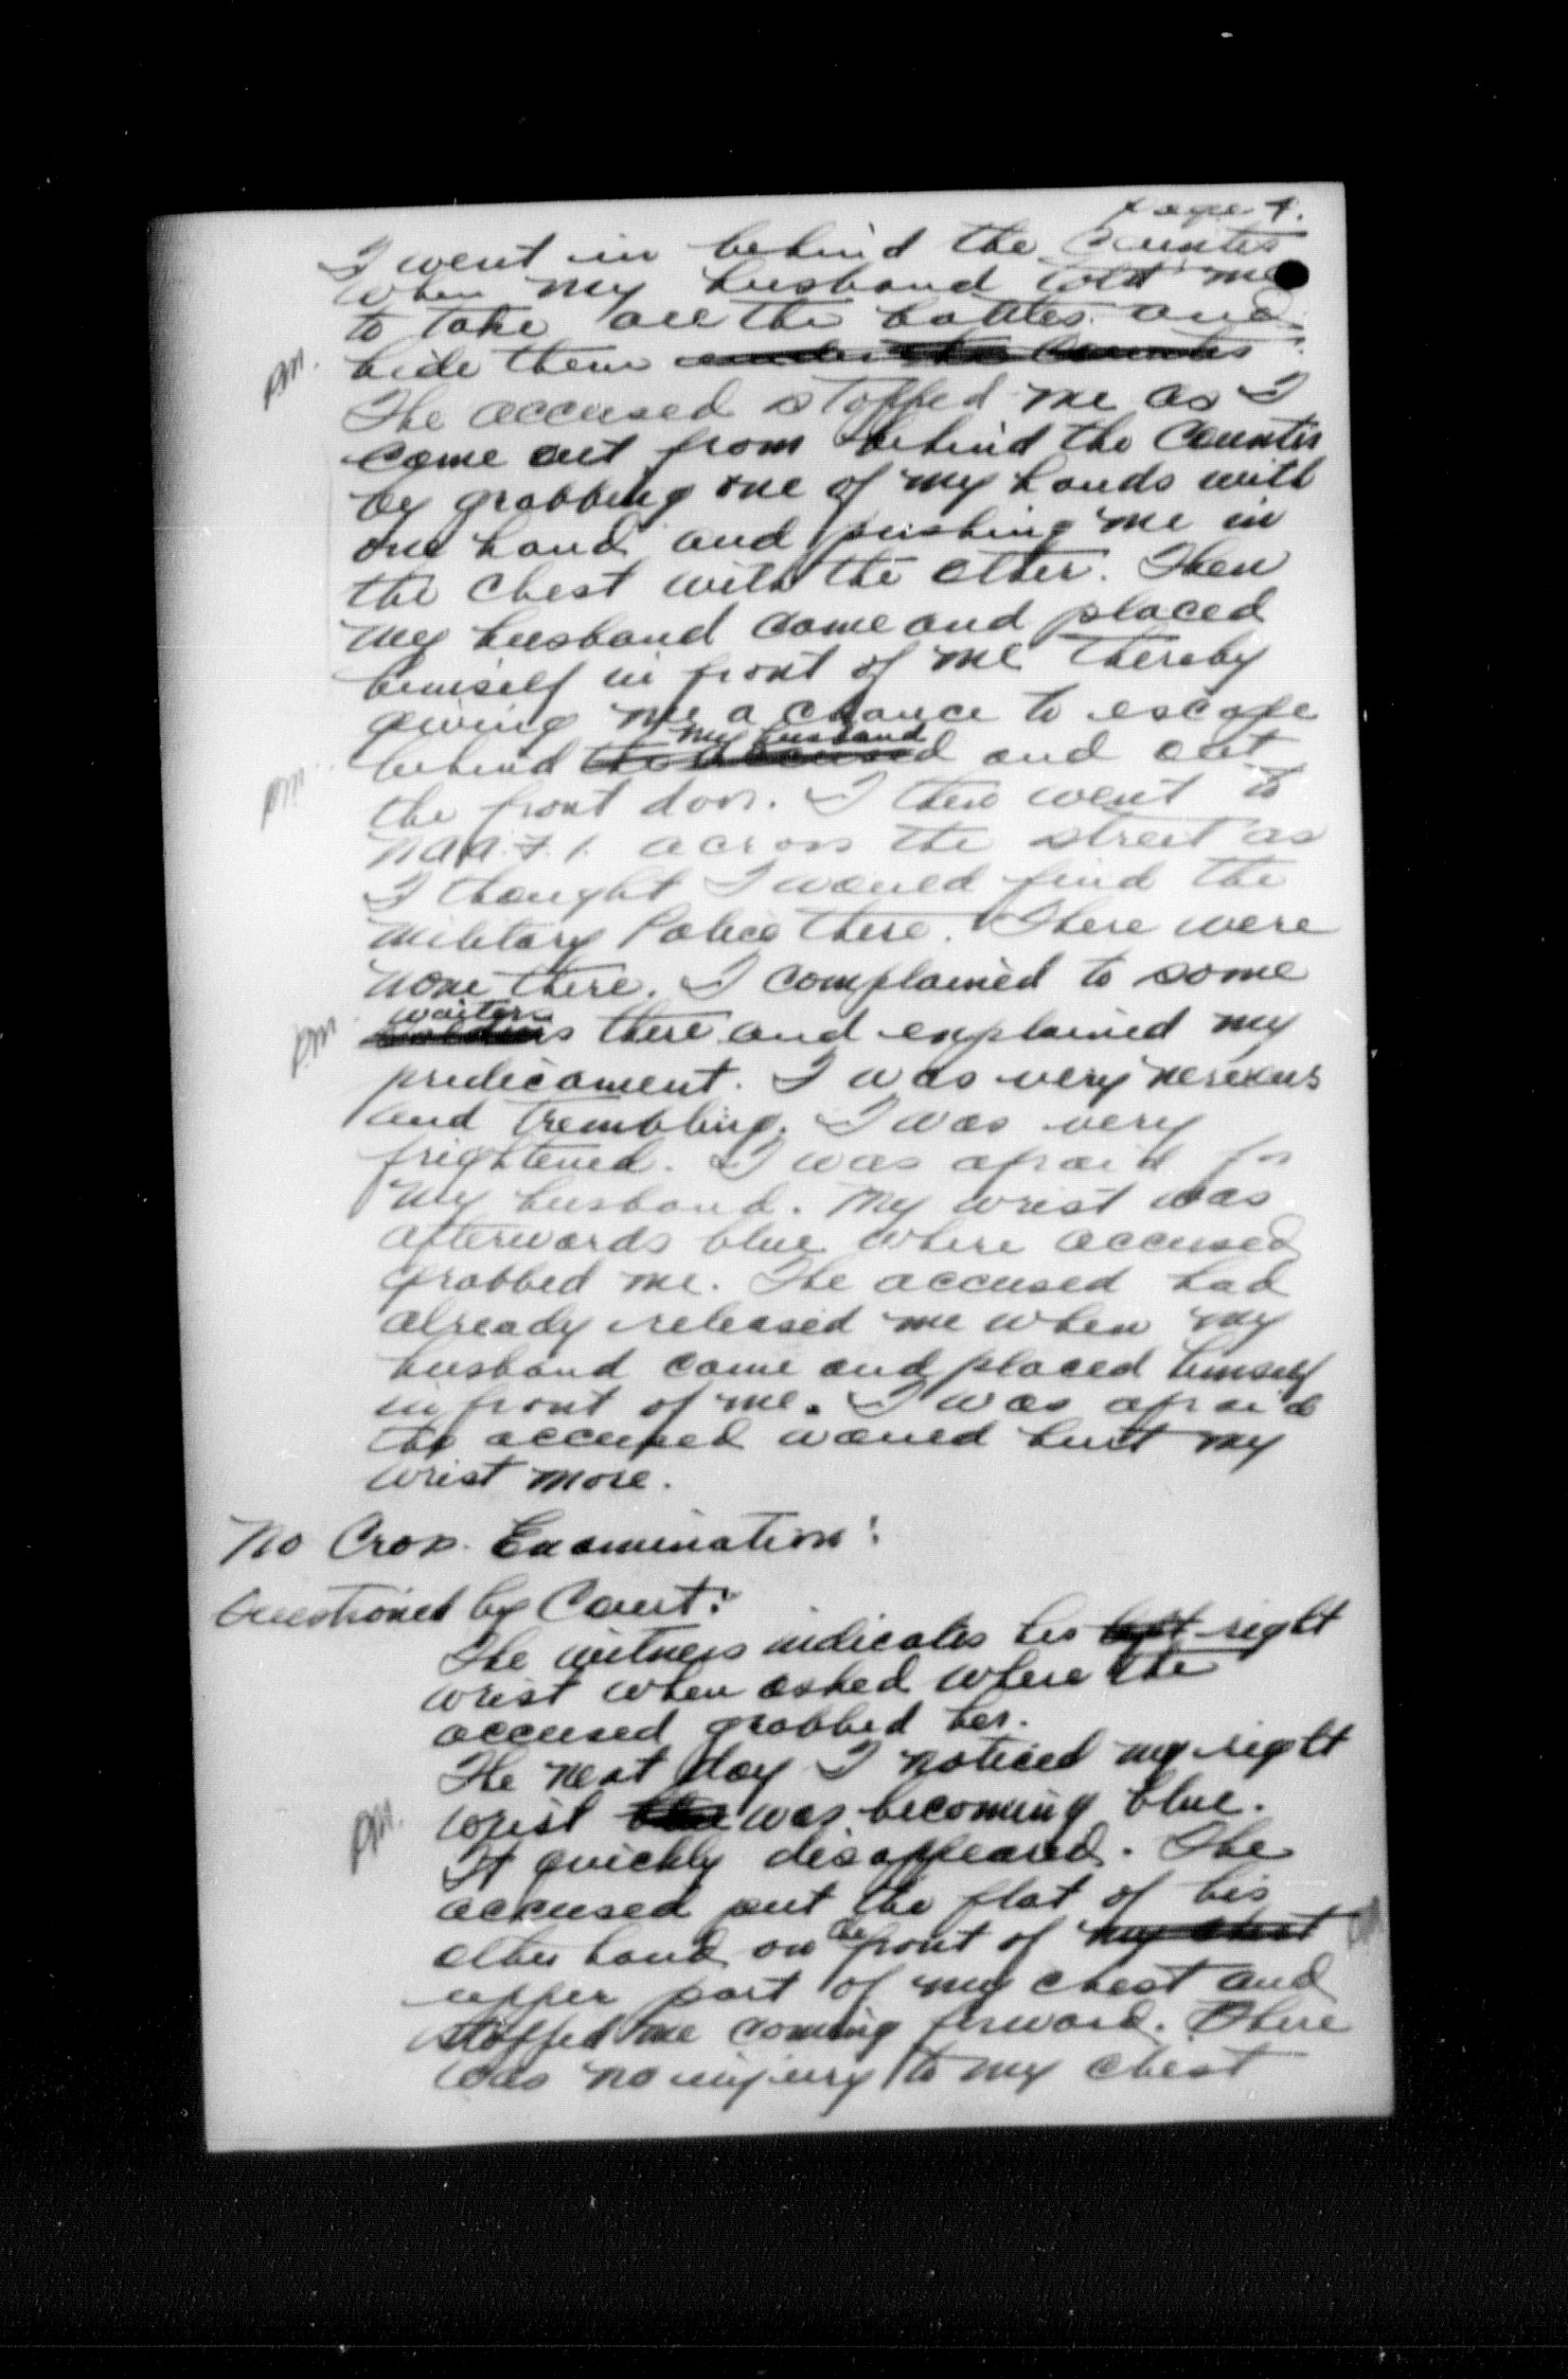 Page 7.
I went in behind the Counter
when my husband told me
to take all the bottles and
PM. hide them under the Counter.
The accused stopped me as I
came out from behind the Counter
by grabbing one of my hands with
one hand and pushing me in
the chest with the other. Then
my husband came and placed
himself in front of me thereby
giving me a chance to escape
my husband
behind the accused and out
PM. the front door. I then went to
N.A.A.F.I. across the street as
I thought I would find the
Military Police there. There were
none there. I complained to some
waiters
PM. soldiers there and explained my
predicament. I was very nervous
and trembling. I was very
frightened. I was afraid for
my husband. My wrist was
afterwards blue where accused
grabbed me. The accused had
already released me when my
husband came and placed himself
in front of me. I was afraid
the accused would hurt my
wrist more.
No Cross Examination:
Questioned by Court:
The witness indicates her left right
wrist when asked where the
accused grabbed her.
The next day I noticed my right
PM. wrist was becoming blue.
It quickly disappeared. The
accused put the flat of his
other hand on the front of my chest
upper part of my chest and
stopped me coming forward. There
was no injury to my chest